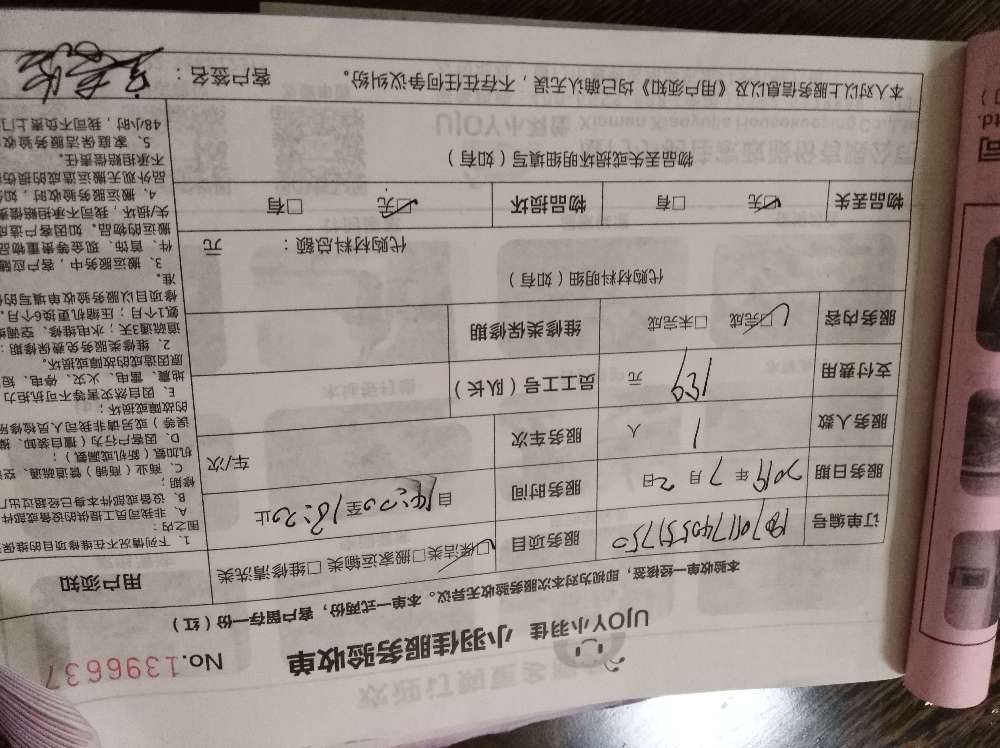 UJOY小羽佳 小羽佳服务验收单 No.1396637
本验收单一经核签，即视为对本次服务验收无异议。本单一式两份，客户留存一份（红）
订单编号 服务项目 ☑保洁类□搬家运输类 □维修清洗类
服务日期 2019 年 7 月 2 日 服务时间 自 14:20 至 18:20 止
服务人数 1 人 服务车次 车/次
支付费用 139 元 员工工号（队长）
服务内容 ☑完成 □未完成 维修类保修期
代购材料明细（如有）
代购材料总额： 元
物品丢失 ☑无 □有 物品损坏 ☑无 □有
物品丢失或损坏明细填写（如有）
用户须知
1、下列情况不在维修项目的维保
围之内：
A、非我司员工提供的设备或部件
B、设备或部件本身已经超过出厂
修期；
C、商业（商铺）管道疏通、空
机加氨（新机或漏氨）；
D、因客户行为（擅自装卸、搬
误等）或另请非我司人员检修所
的故障或损坏；
E、因自然灾害等不可抗拒力
地震、雷电、火灾、停电、短
原因造成的故障或损坏。
2、维修类服务免费保修期：
道疏通3天；水电维修、空调
氨1个月；压缩机更换6个月。
修项目以服务验收单填写的
准。
3、搬运服务中，客户应随
件、首饰、现金等贵重物品
搬运的物品。如因客户造成
失/损坏，我司不承担赔偿责
4、搬运服务验收时，如
品外观无搬运造成的损伤
不承担赔偿责任。
5、家庭保洁服务验收
48小时，我司不负责上门
本人对以上服务信息以及《用户须知》均已确认无误，不存在任何争议纠纷。 客户签名：